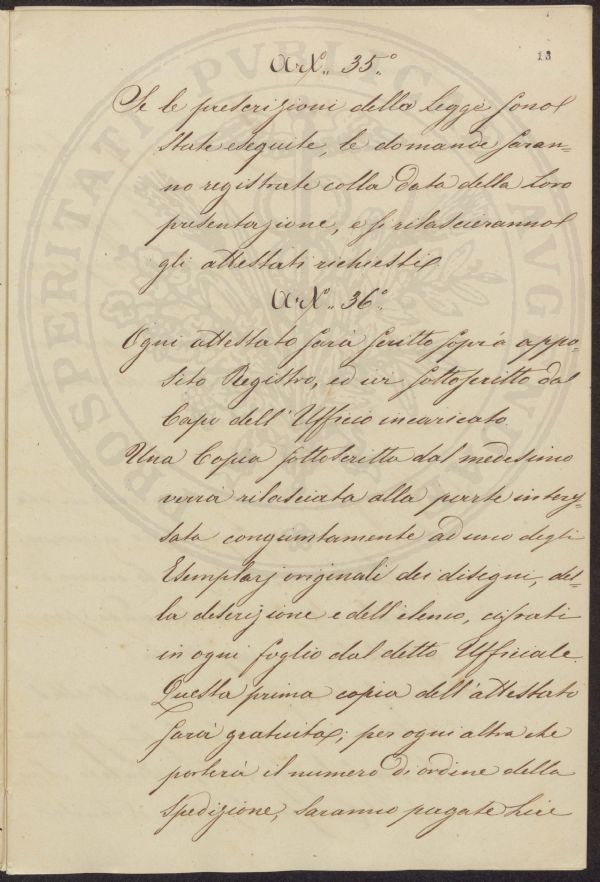 13
Art. 35.°
Se le prescrizioni della Legge sono
state eseguite, le domande saran=
no registrate colla data della loro
presentazione, e si rilascieranno
gli attestati richiesti.
Art. 36.°
Ogni attestato sarà scritto sopra appo=
sito Registro, ed ivi sottoscritto dal
Capo dell'Ufficio incaricato.
Una Copia sottoscritta dal medesimo
verrà rilasciata alla parte interes=
sata congiuntamente ad uno degli
Esemplarj originali dei disegni, del=
la descrizione e dell'elenco, cifrati
in ogni foglio dal detto Ufficiale.
Questa prima copia dell'attestato
sarà gratuita; per ogni altra che
porterà il numero d'ordine della
Spedizione, saranno pagate Lire